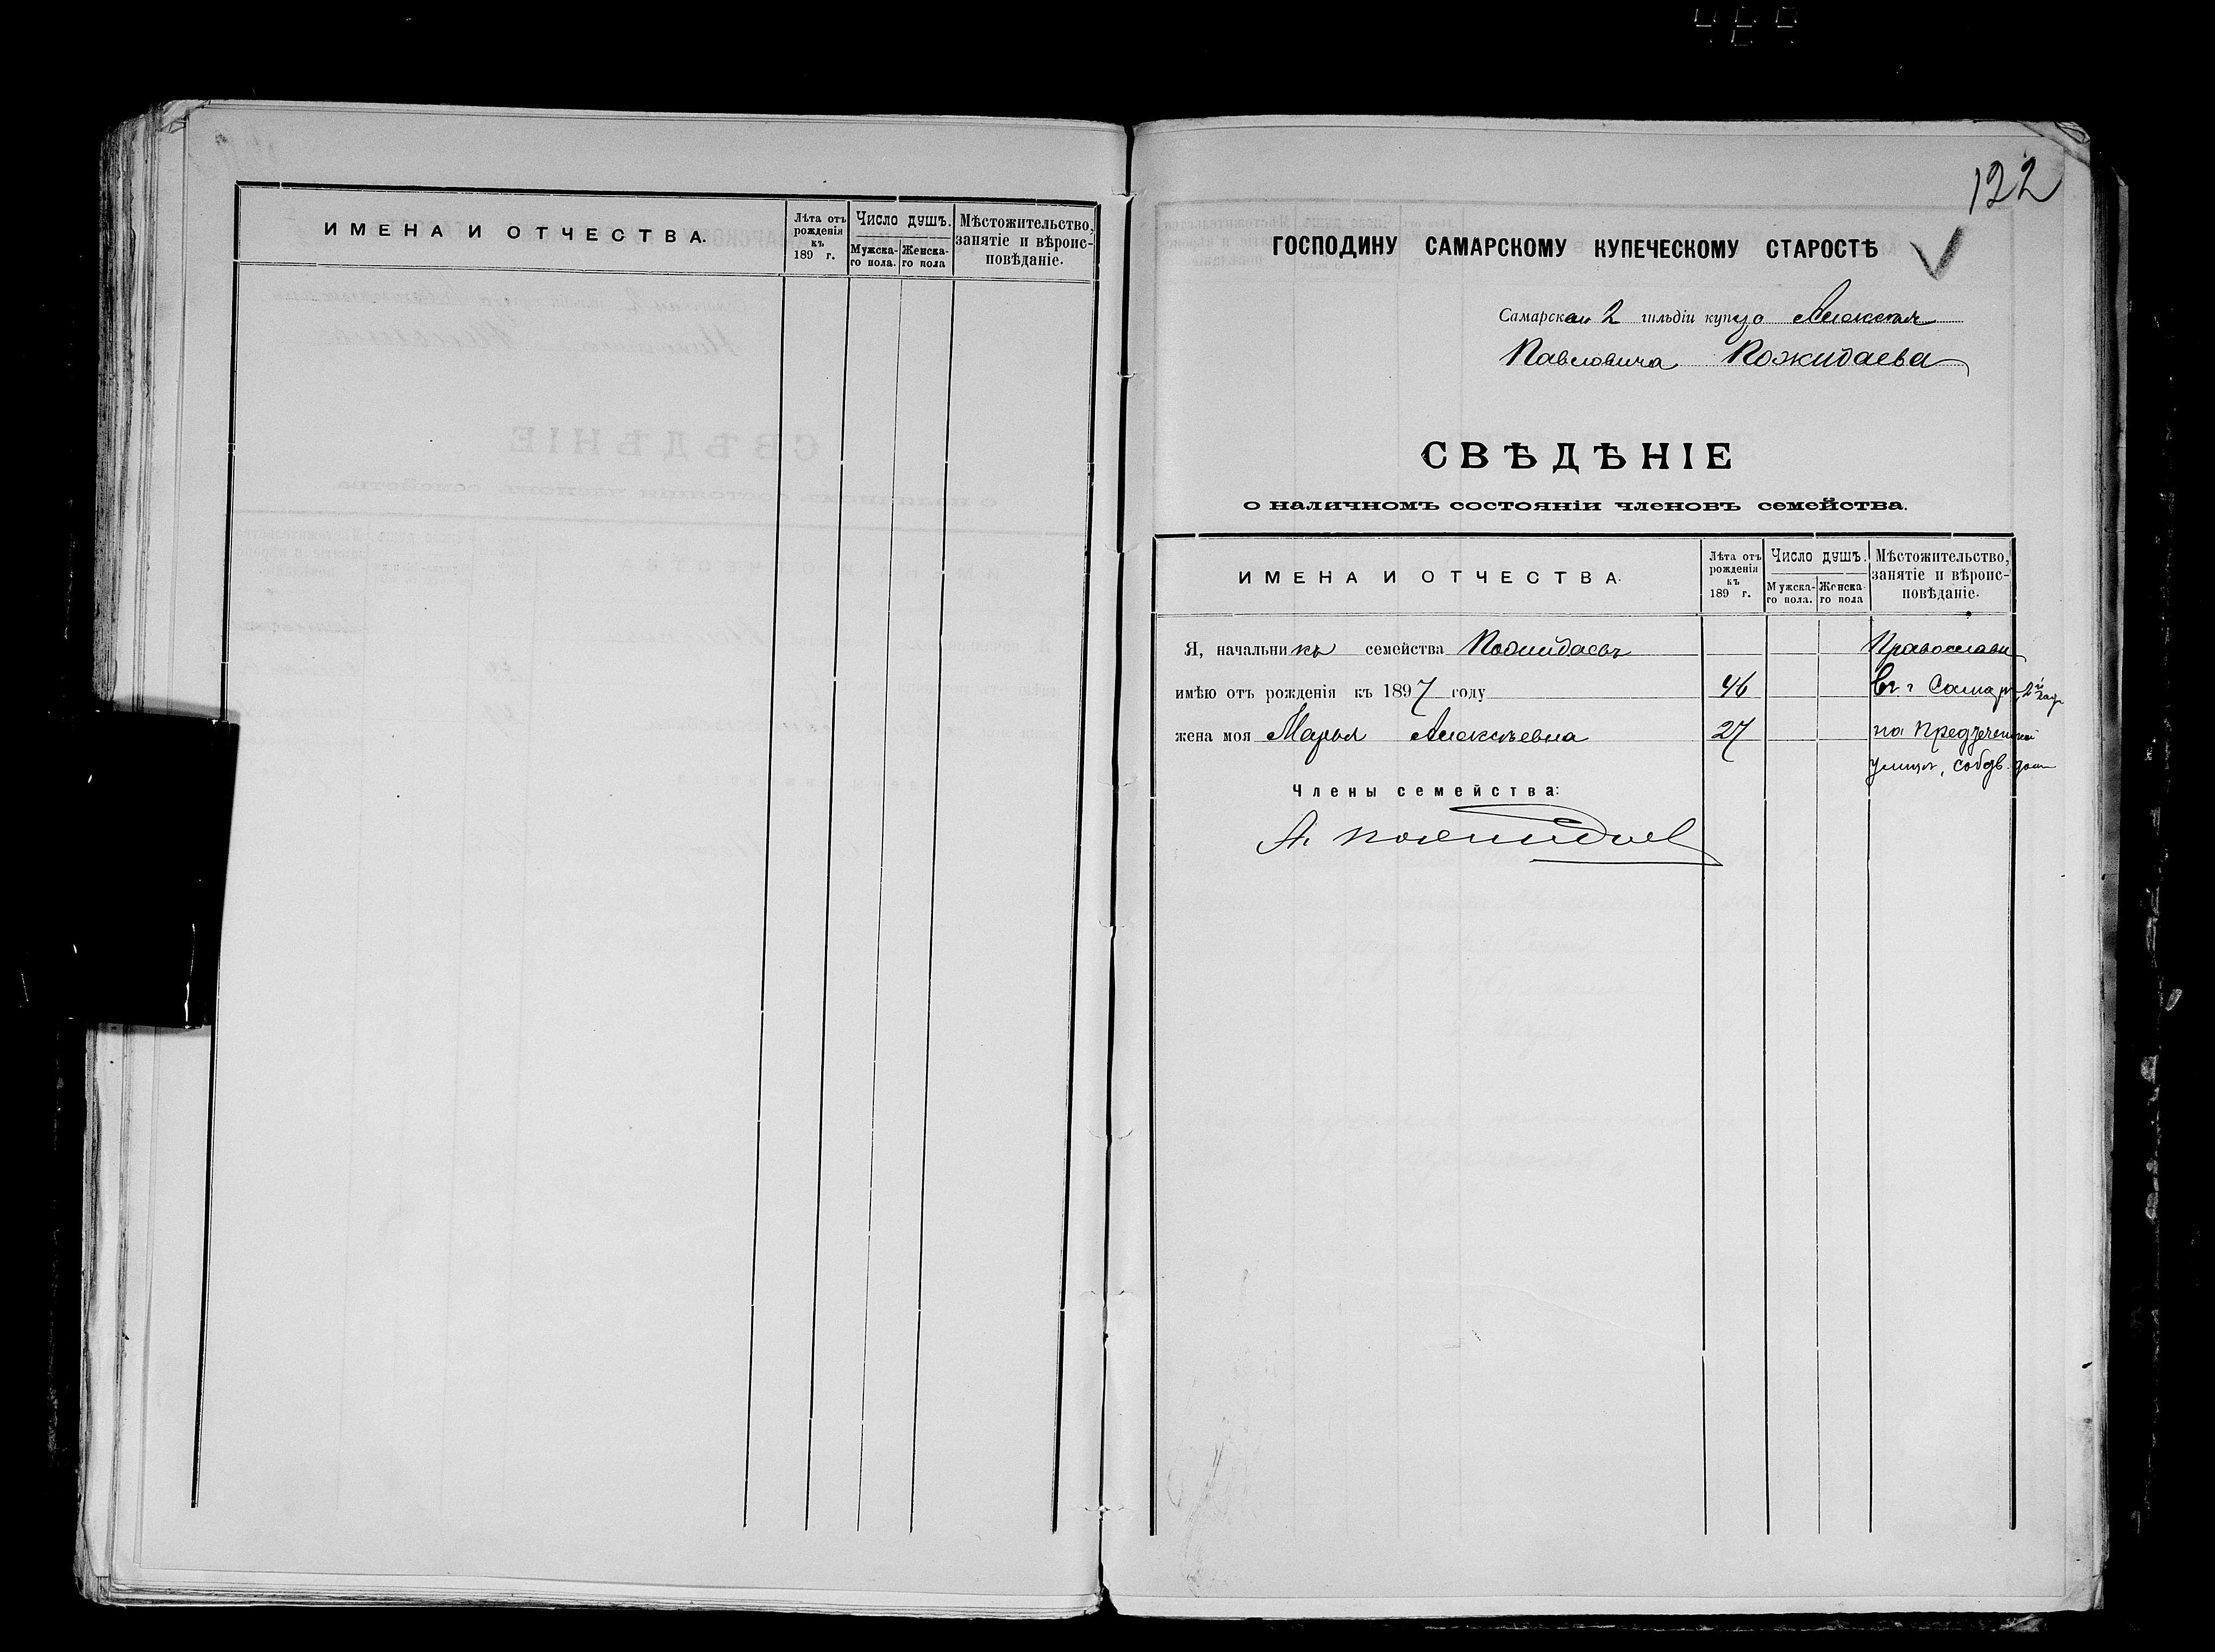 ИМЕНА И ОТЧЕСТВА.
Лѣта отъ рожденія къ 189 г.
Число душъ.
Мужска-го пола.
Женска-го пола
Мѣстожительство, занятіе и вѣроис-повѣданіе.
122
ГОСПОДИНУ САМАРСКОМУ КУПЕЧЕСКОМУ СТАРОСТѢ
Самарскаго 2 гильдіи купца Алексѣя
Павловича Пожидаева
СВѢДѢНІЕ
о наличномъ состояніи членовъ семейства.
ИМЕНА И ОТЧЕСТВА.
Лѣта отъ рожденія къ 189 г.
Число душъ.
Мужска-го пола.
Женска-го пола
Мѣстожительство, занятіе и вѣроис-повѣданіе.
Я, начальникъ семейства Пожидаевъ Православн
имѣю отъ рожденія къ 1897 году 46 Въ г Самарѣ, 2й
жена моя Марья Алексѣевна 27 на Предтеченской
улицѣ, собств. домъ
Члены семейства:
А. Пожидаев